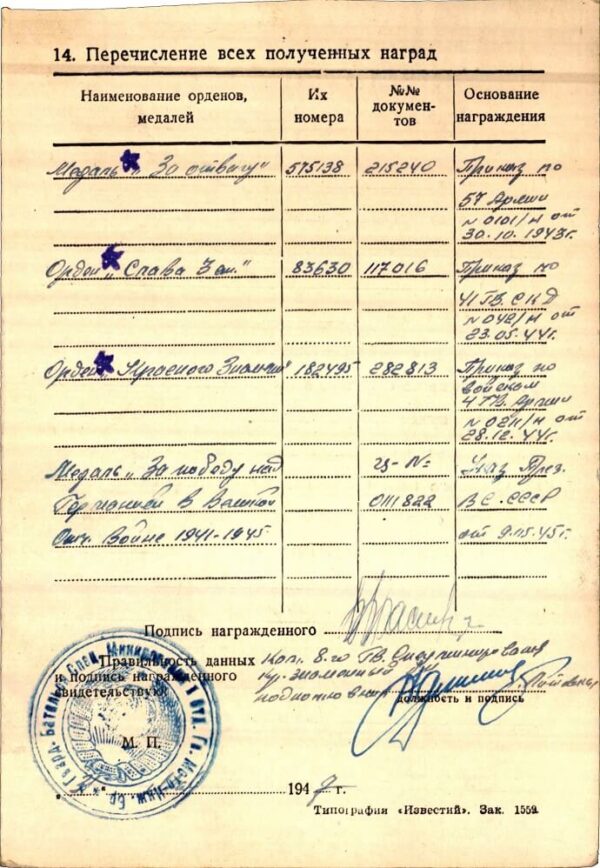 14. Перечисление всех полученных наград
Наименование орденов, медалей
Их номера
№№ докумен-
тов
Основание награждения
Медаль „За отвагу" 575138 215240 Приказ по
57 Армии
N 0101/н от
30.10.1943г.
Орден „Слава 3 ст." 83630 117016 Приказ по
41 ГВ. СКД
N 042/н от
23.05.44г.
Орден „Красного Знамени" 182495 282813 Приказ по
войскам
4 ГВ. Армии
N 021/н от
28.12.44г.
Медаль „За победу над Указ През.
Германией в Великой 0111822 ВС. СССР
Отч. Войне 1941-1945 от 9.05.45г.
Подпись награжденного
Правильность данных
и подпись награжденного
свидетельствую:
Ком. 8-го Гв.
должность и подпись
М. П.
1947 г.
Типография «Известий». Зак. 1559.